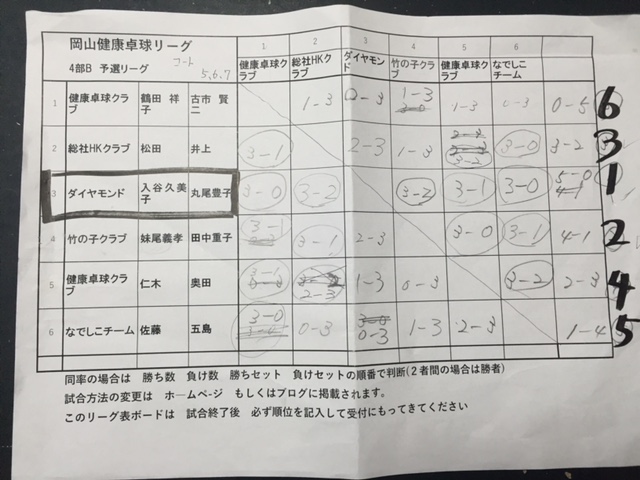 岡山健康卓球リーグ
4部B 予選リーグ コート 5,6,7
1 2 3 4 5 6
健康卓球クラブ 総社HKクラブ ダイヤモンド 竹の子クラブ 健康卓球クラブ なでしこチーム
1 健康卓球クラブ 鶴田 祥子 古市 賢二 1-3 0-3 1-3 1-3 0-3 0-5 6
2 総社HKクラブ 松田 井上 3-1 2-3 1-3 3-2 3-0 3-2 3
3 ダイヤモンド 入谷久美子 丸尾豊子 3-0 3-2 3-2 3-1 3-0 5-0 1
4 竹の子クラブ 妹尾義孝 田中重子 3-1 3-1 2-3 3-0 3-1 4-1 2
5 健康卓球クラブ 仁木 奥田 3-1 2-3 1-3 0-3 3-2 2-3 4
6 なでしこチーム 佐藤 五島 3-0 0-3 0-3 1-3 2-3 1-4 5
同率の場合は 勝ち数 負け数 勝ちセット 負けセットの順番で判断(2者間の場合は勝者)
試合方法の変更は ホームページ もしくはブログに掲載されます。
このリーグ表ボードは 試合終了後 必ず順位を記入して受付にもってきてください